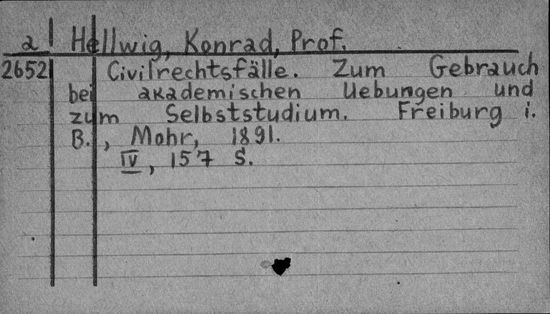 a Hellwig, Konrad, Prof.
2652 Civilrechtsfälle. Zum Gebrauch
bei akademischen Uebungen und
zum Selbststudium. Freiburg i.
B., Mohr, 1891.
IV, 157 S.